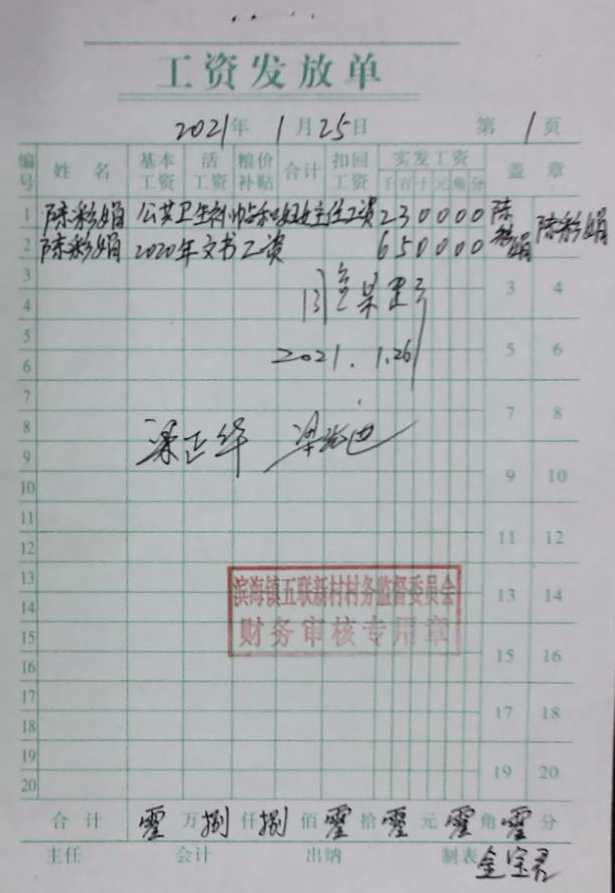 工资发放单
2021年 1月25日 第 1 页
编号 姓名 基本工资 活工资 粮价补贴 合计 扣回工资 实发工资 千百十元角分 盖章
1 陈彩娟 公共卫生补贴和妇女主任工资 230000 陈彩娟 陈彩娟
2 陈彩娟 2020年文书工资 650000
3 3 4
4
2021.1.26
5 5 6
6
7 7 8
8 梁正华
9 9 10
10
11 11 12
12
13 滨海镇五联新村村务监督委员会 13 14
14 财务审核专用章
15 15 16
16
17 17 18
18
19 19 20
20
合计 零万捌仟捌佰零拾零元零角零分
主任 会计 出纳 制表